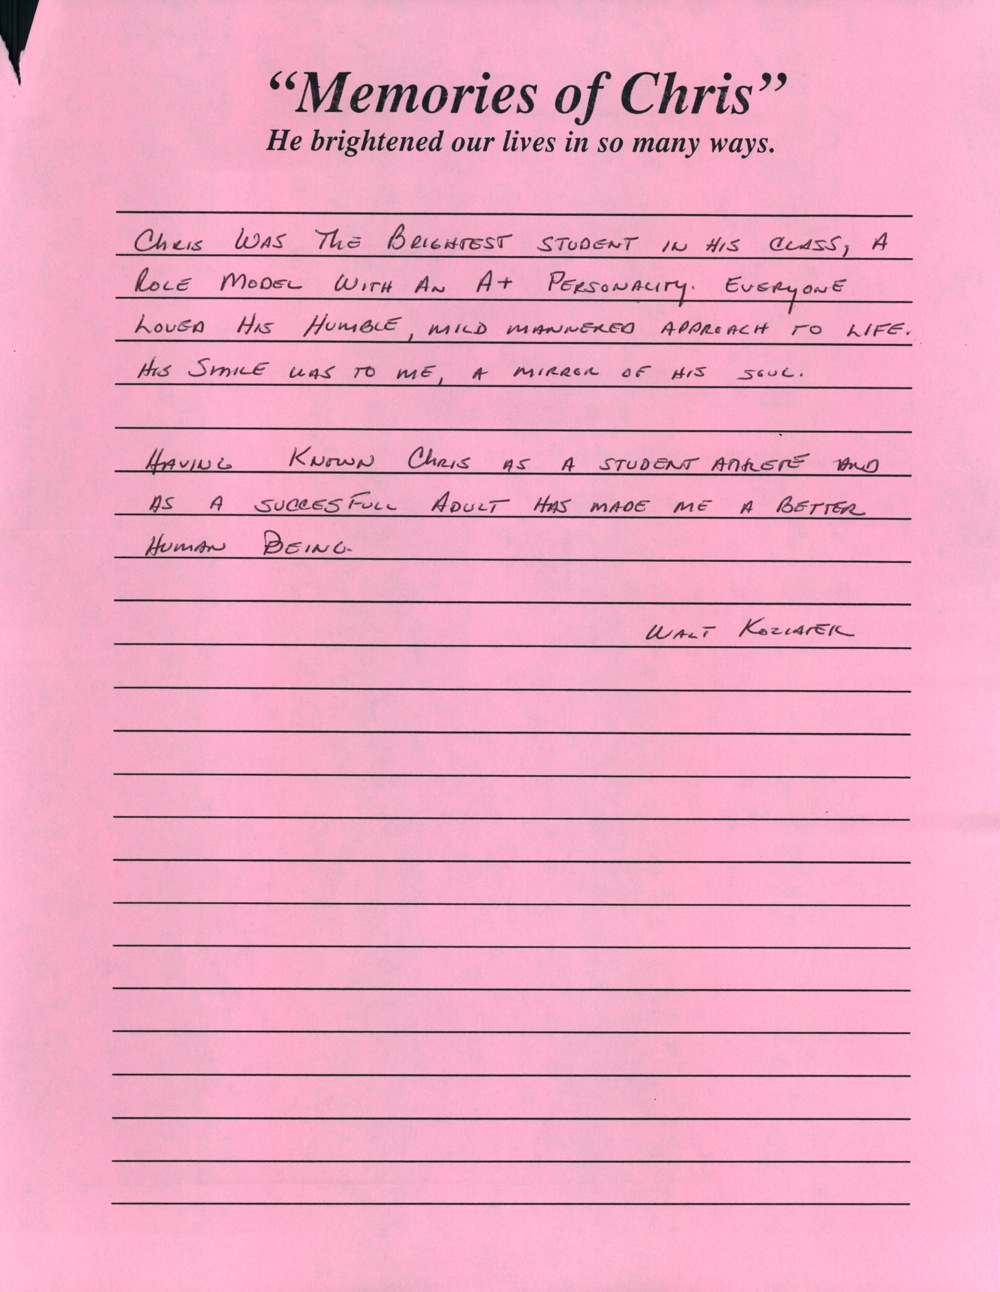 “Memories of Chris”
He brightened our lives in so many ways.
Chris WAS The BRIGHTEST STUDENT IN HIS CLASS, A
ROLE MODEL WITH AN A+ PERSONALITY. EVERyONE
LOVED HIS HUMBLE, MILD MANNERED APPROACH TO LIFE.
HIS SMILE WAS TO ME, A MIRROR OF HIS SOUL.
HAVING KNOWN Chris AS A STUDENT ATHLETE AND
AS A SUCCESFULL ADULT HAS MADE ME A BETTER
HUMAN BEING.
WALT